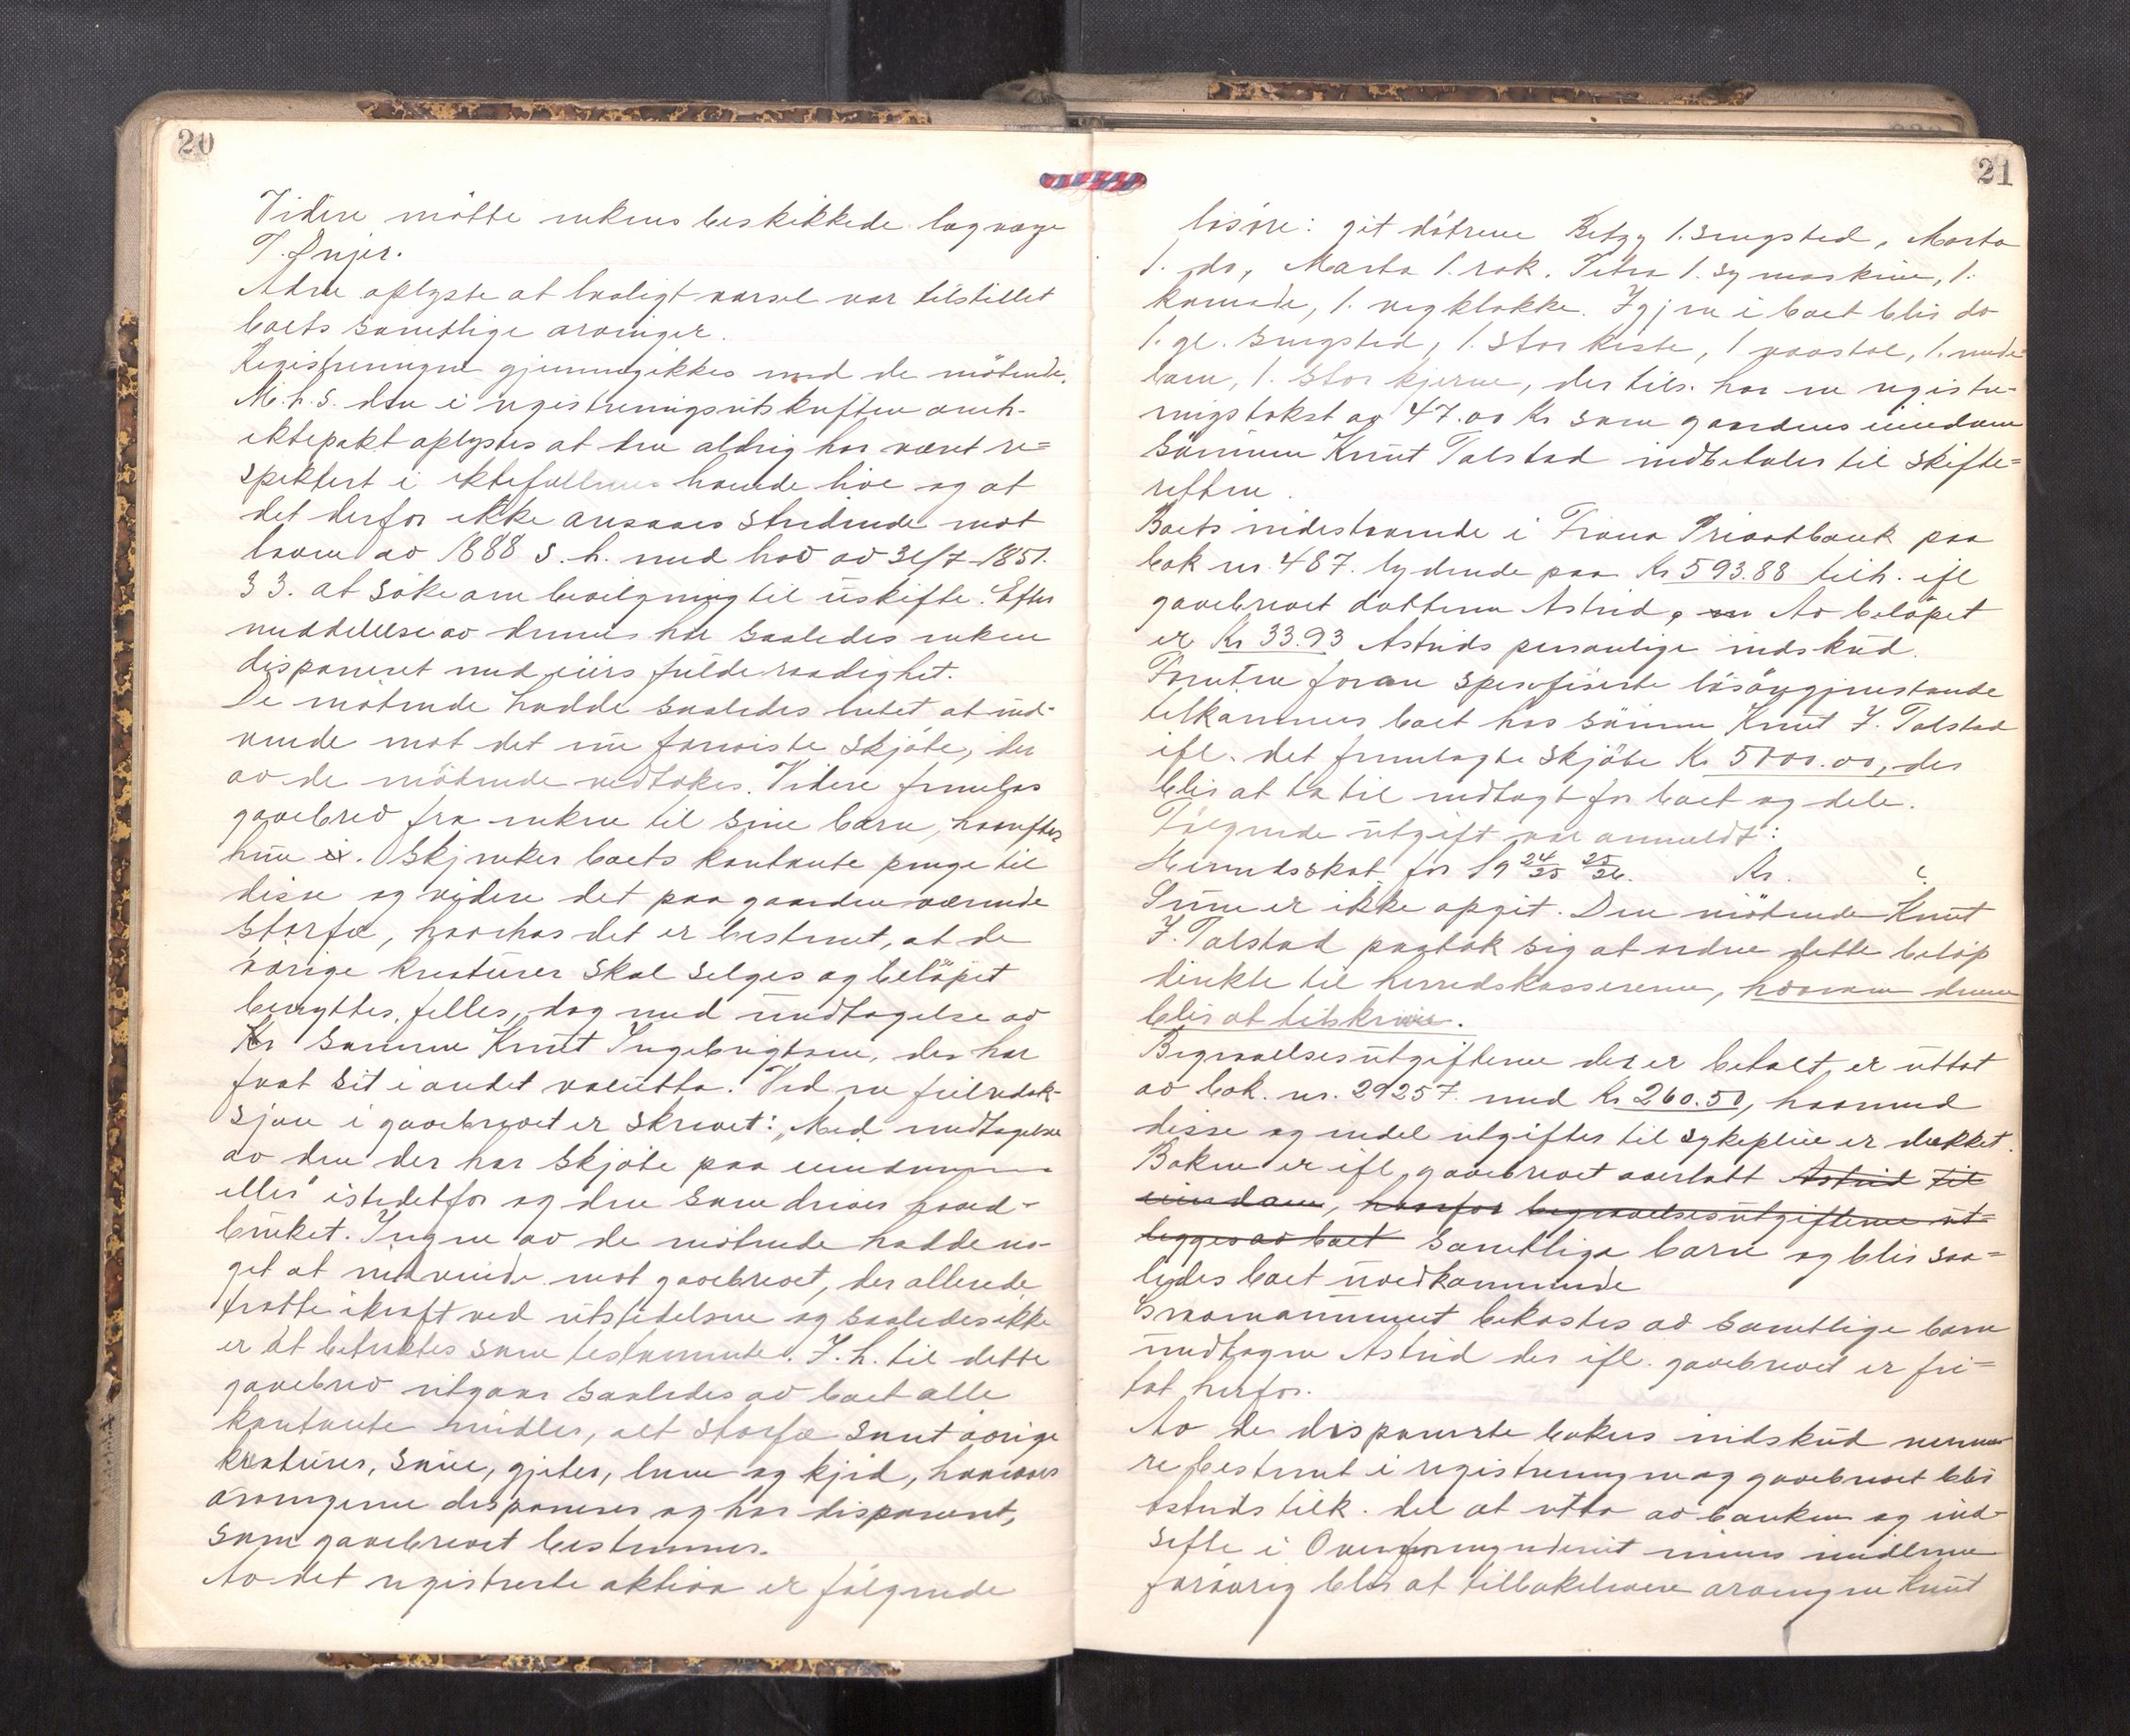 20
Videre mötte enkens beskikkede lagværge
T.
oplyste at lovligt varsel var tilstillet
boets samtlige arvinger.
Registreringen gjennemgikkes med de mötende.
M.h.s. den i registreringsutskriften omh.
ektepakt oplystes at den aldrig har været re=
spektert i ektefællernes levende live og at
det derfor ikke ansaaes stridende mot
loven av 1888 s. h. med lov av 31/7-1851.
§ 3. at söke om bevilgning til uskifte. Efter
meddelelse av denne har saaledes enken
disponeret med eiers fulde raadighet.
De mötende hadde saaledes intet at ind-
vende mot det nu foreviste skjöte, der
av de mötende vedtokes. Videre fremlas
gavebrev fra enken til sine barn, hvorefter
hun skjenker boets kontante penge til
disse og videre det paa gaarden værende
storfæ, hvorhos det er bestemt, at de
övrige kreaturer skal selges og belöpet
benyttes felles, dog med undtagelse av
sönnen Knut Ingebrigtsen, der har
faat sit i andet valutta. Ved en feilredak-
sjon i gavebrevet er skrevet: "Med undtagelse
av den der har skjöte paa eiendommen
eller" istedetfor og den som driver gaard-
bruket. Ingen av de mötende hadde no-
get at indvende mot gavebrevet, der allerede
traatte i kraft ved utstedelsen og saaledes ikke
er at betraktes som testamente. I. h. til dette
gavebrev utgaar saaledes av boet alle
kontante midler, alt storfæ samt övrige
kreaturer, sauer, gjeter, lam og kjid, hvorover
arvingerne disponerer og har disponeret,
som gavebrevet bestemmer.
Av det registrerte aktiva er fölgende
21
lösöre: git dötrene Betzy 1. sengsted, Marta
1. do, Marta 1. rok. Petra 1. symaskine, 1.
komode, 1. vegklokke. Igjen i boet blir da
1. gl. sengsted, 1. stor kiste, 1 vævstol,
1. stor kjerne, der tils. har en registre-
ringstakst av 47.00 Kr som gaardens eiendom
sönnen Knut Talstad indbetaler til skifte=
retten.
Boets indestaaende i Fræna Privatbank paa
bok nr. 487. lydende paa Kr 593.88 tilh. ifl
gavebrevet datteren Astrid, Av belöpet
er Kr 33.93 Astrids personlige indskud.
Foruten foran spesefiserte lösöregjenstande
tilkommer boet hos sönnen Knut I. Talstad
ifl. det fremlagte skjöte Kr 5000.00, der
blir at ta til indtægt for boet og dele.
Fölgende utgift var anmeldt:
Herredsskat for 19 24/25 25/26. Kr. ?
Summer ikke opgit. Den mötende Knut
I. Talstad paatok sig at ordne dette belöp
direkte til herredskassereren, hvorom denne
blir at tilskrive.
Begravelsesutgifterne der er betalt, er uttat
av bok. nr. 29257. med Kr 260.50, hvormed
disse og endel utgifter til sykepleie er dækket.
Boken er ifl. gavebrevet overlatt Astrid til
eiendom, hvorfor begravelsesutgifterne ut=
legges av boet samtlige barn og blir saa=
ledes boet uvedkommende
Gravmonument bekostes av samtlige barn
undtagen Astrid der ifl. gavebrevet er fri=
tat herfor.
Av de disponerte bokers indskud nerme-
re bestemt i registreringen og gavebrevet blir
Astrids tilk. del at utta av banken og ind-
sette i Overformynderiet mens midlerne
forövrig blir at tilbakelevere arvingen Knut